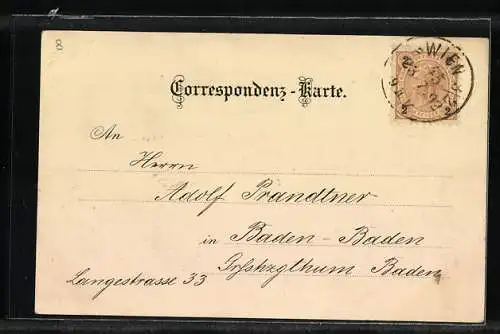 8
WIEN
Correspondenz-Karte.
An
Herrn
Adolf Prandtner
in Baden-Baden
Grßhzgthum Baden
Langestrasse 33